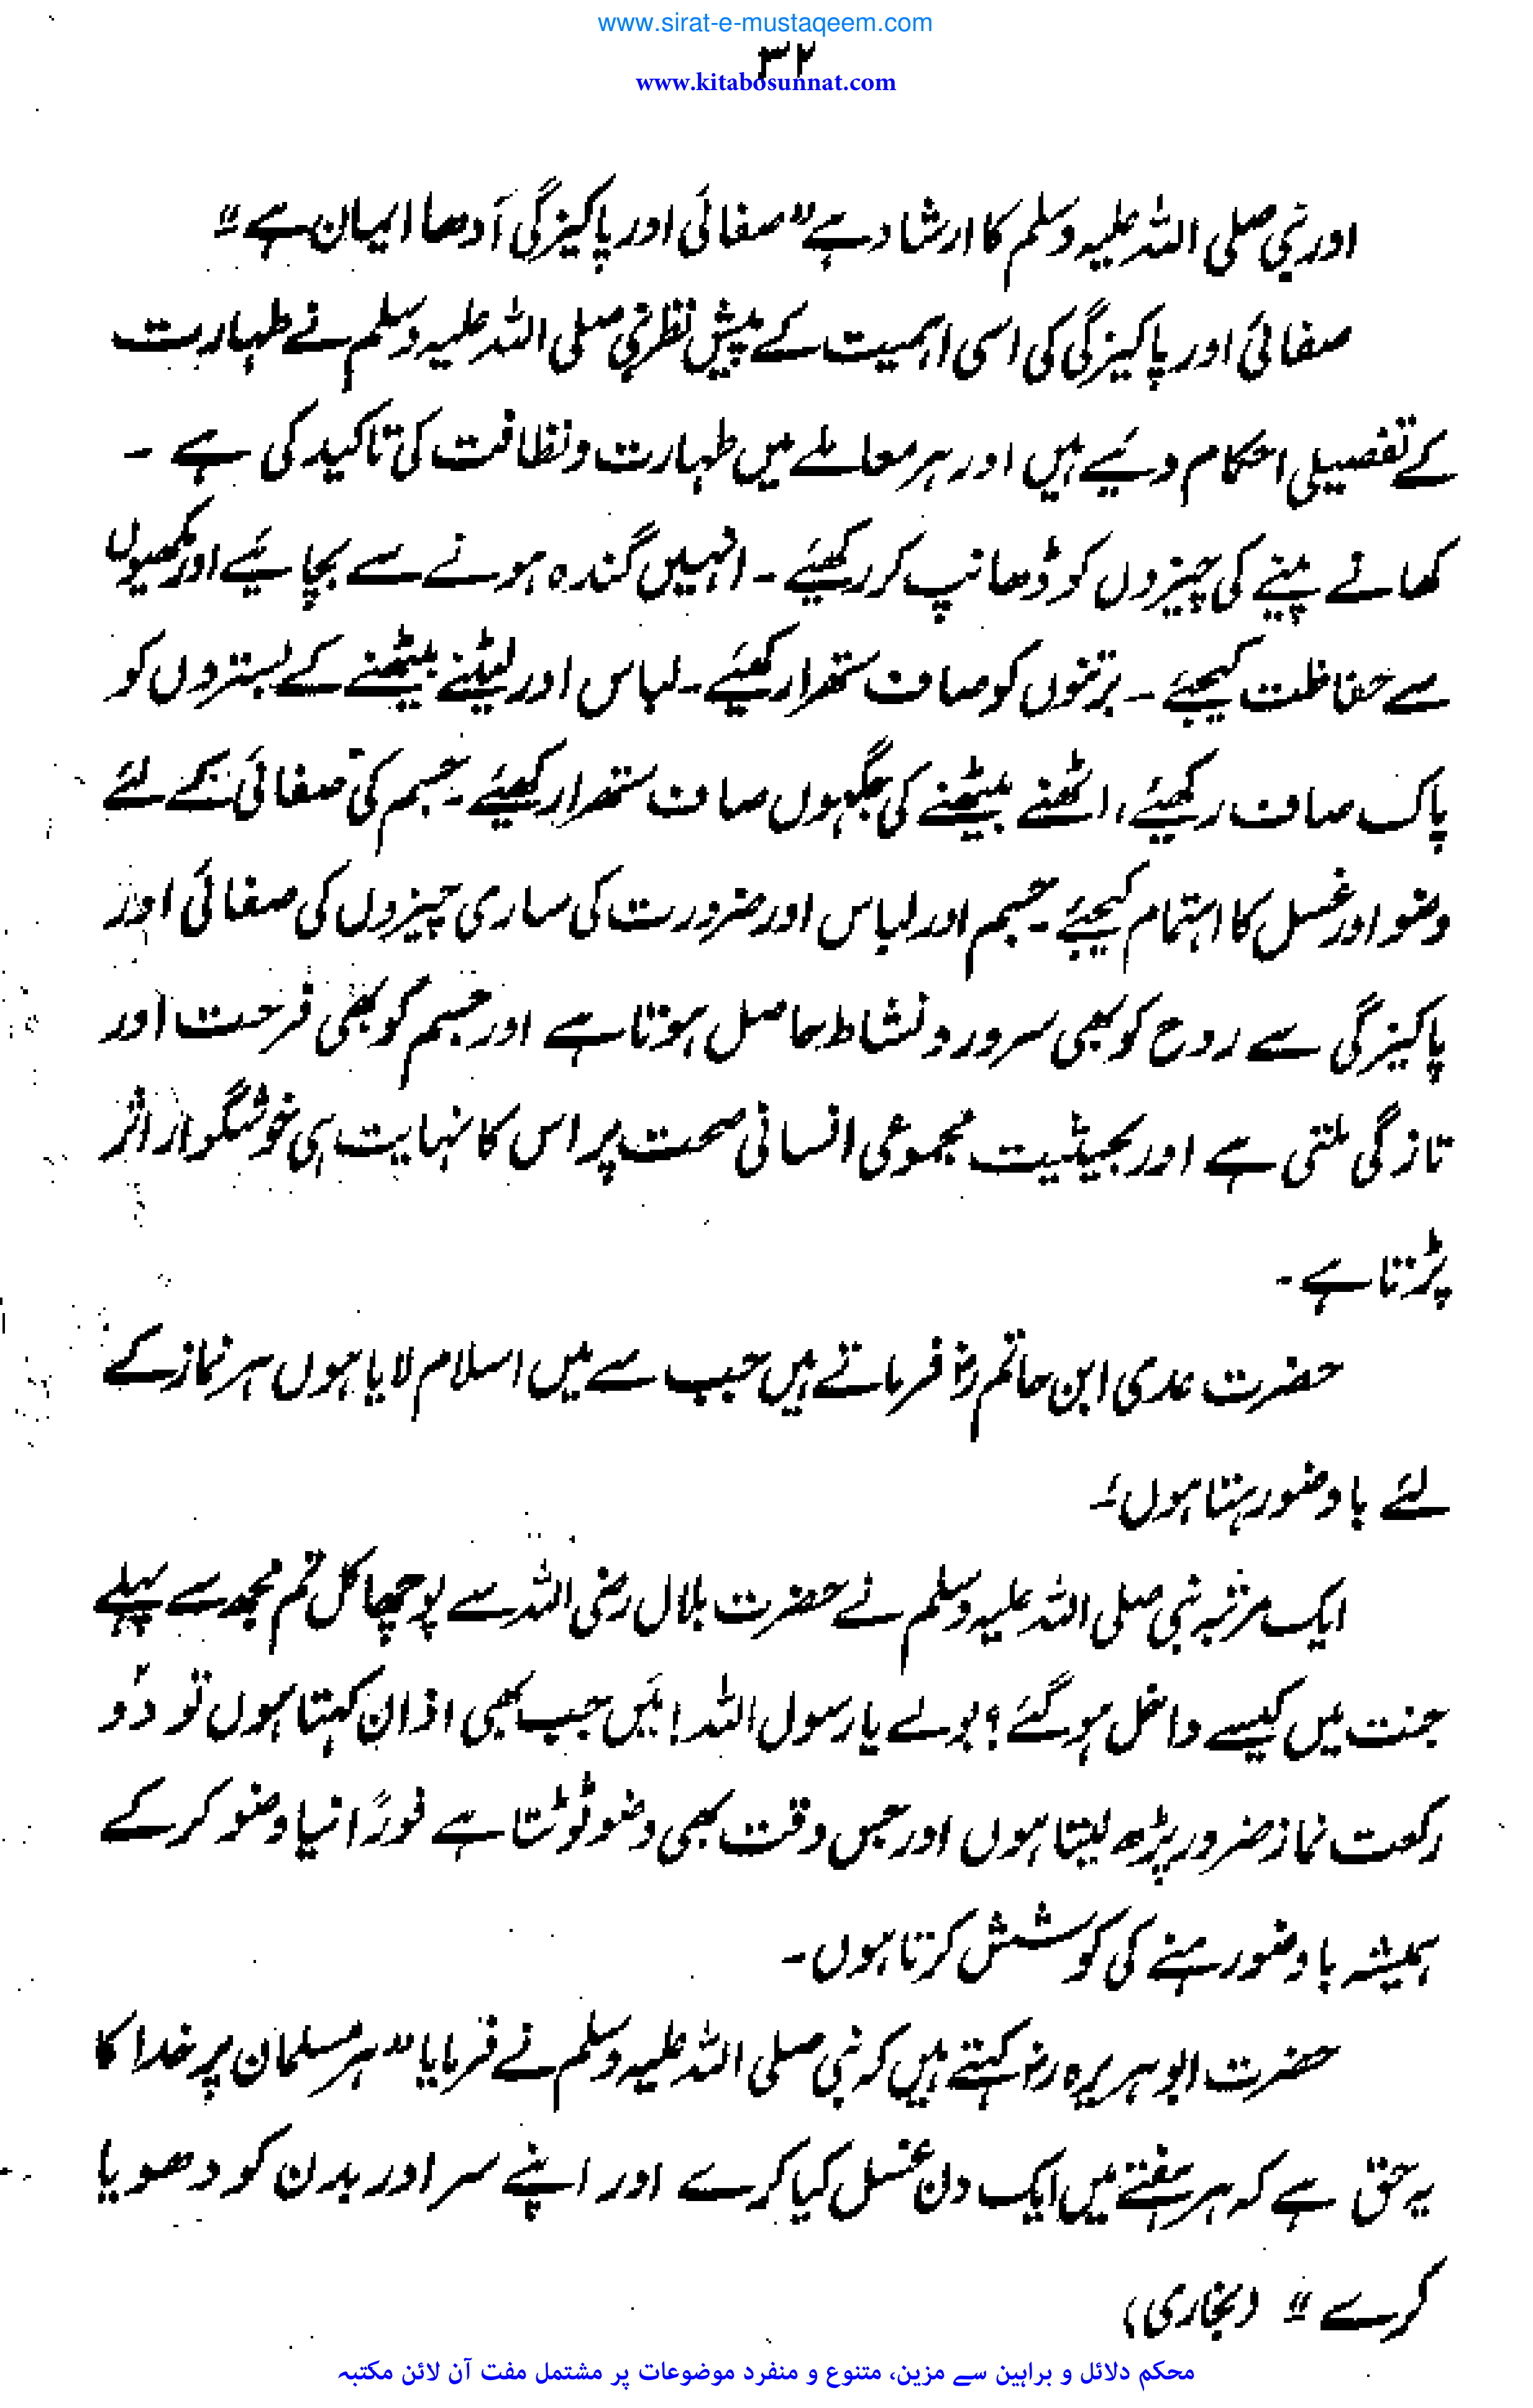 www.sirat-e-mustaqeem.com
۳۲
www.kitabosunnat.com
اور نبی صلی اللہ علیہ وسلم کا ارشاد ہے "صفائی اور پاکیزگی آدھا ایمان ہے"
صفائی اور پاکیزگی کی اسی اہمیت کے پیش نظر نبی صلی اللہ علیہ وسلم نے طہارت
کے تفصیلی احکام دئیے ہیں اور ہر معاملے میں طہارت و نظافت کی تاکید کی ہے ۔
کھانے پینے کی چیزوں کو ڈھانپ کر رکھیئے ۔ انہیں گندہ ہونے سے بچائیے اور مکھیوں
سے حفاظت کیجیے ۔ برتنوں کو صاف ستھرا رکھیئے ۔ لباس اور لیٹنے بیٹھنے کے بستروں کو
پاک صاف رکھیئے، اٹھنے بیٹھنے کی جگہوں صاف ستھرا رکھیئے ۔ جسم کی صفائی کے لئے
وضو اور غسل کا اہتمام کیجیے ۔ جسم اور لباس اور ضرورت کی ساری چیزوں کی صفائی اور
پاکیزگی سے روح کو بھی سرور و نشاط حاصل ہوتا ہے اور جسم کو بھی فرحت اور
تازگی ملتی ہے اور بحیثیت مجموعی انسانی صحت پر اس کا نہایت ہی خوشگوار اثر
پڑتا ہے ۔
حضرت عدی ابن حاتم رض فرماتے ہیں جب سے میں اسلام لایا ہوں ہر نماز کے
لئے باوضو رہتا ہوں۔
ایک مرتبہ نبی صلی اللہ علیہ وسلم نے حضرت بلال رضی اللہ سے پوچھا کل تم مجھ سے پہلے
جنت میں کیسے داخل ہو گئے ؟ بولے یا رسول اللہ! میں جب بھی اذان کہتا ہوں تو دو
رکعت نماز ضرور پڑھ لیتا ہوں اور جس وقت بھی وضو ٹوٹتا ہے فوراً نیا وضو کر کے
ہمیشہ باوضو رہنے کی کوشش کرتا ہوں ۔
حضرت ابو ہریرہ رض کہتے ہیں کہ نبی صلی اللہ علیہ وسلم نے فرمایا "ہر مسلمان پر خدا کا
یہ حق ہے کہ ہر ہفتے میں ایک دن غسل کیا کرے اور اپنے سر اور بدن کو دھویا
کرے" (بخاری)
محکم دلائل و براہین سے مزین، متنوع و منفرد موضوعات پر مشتمل مفت آن لائن مکتبہ